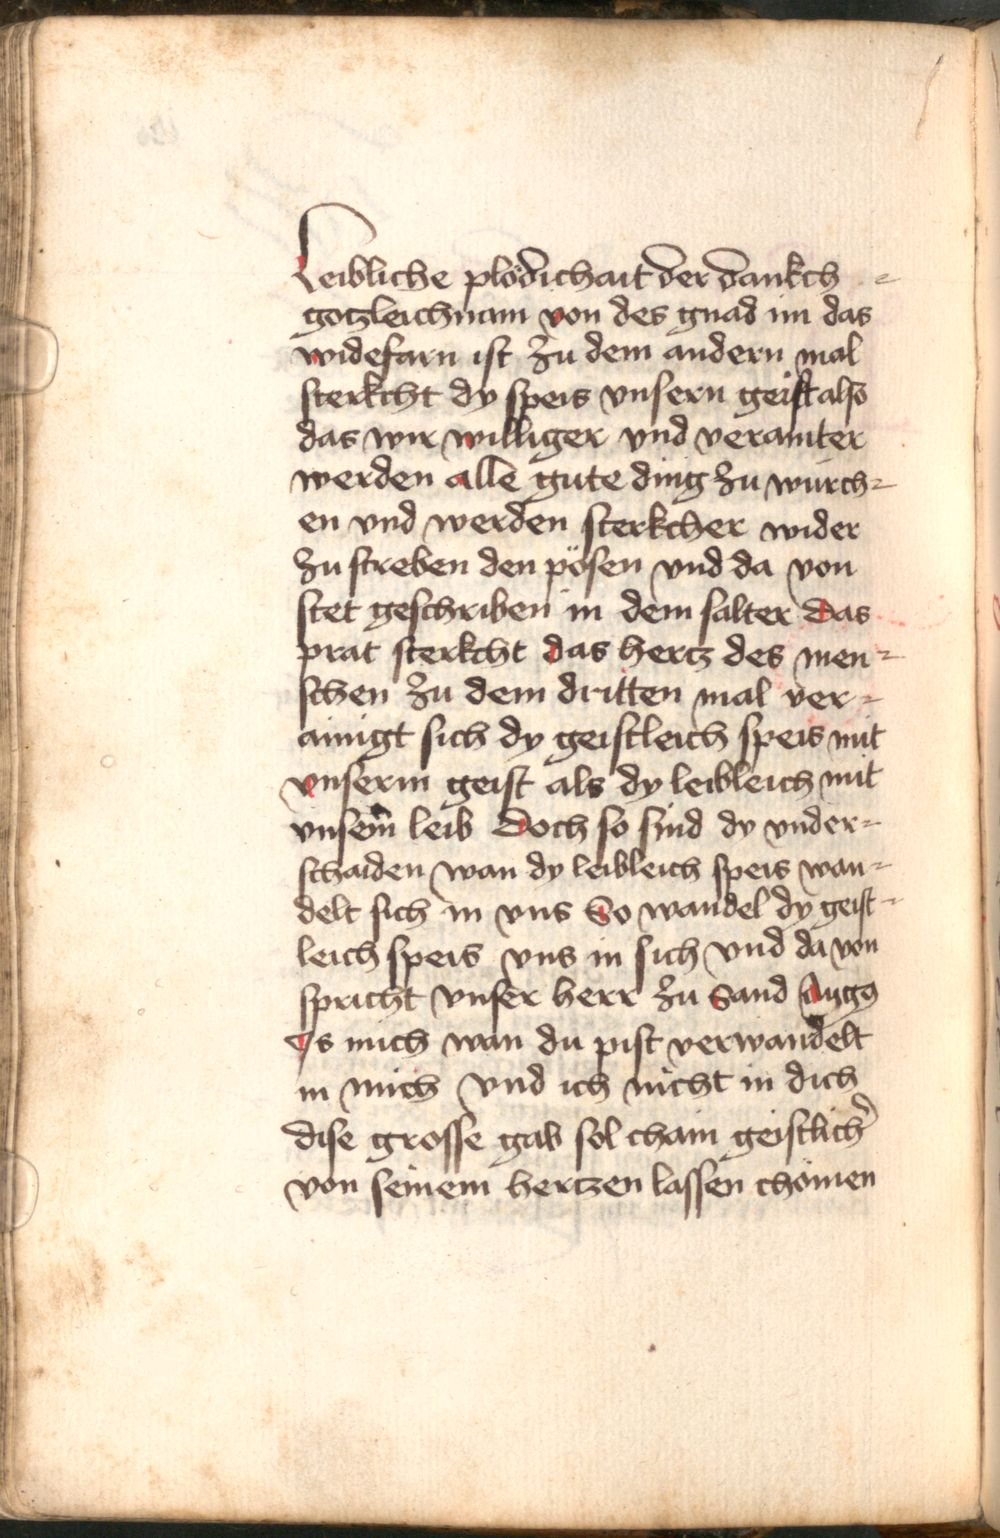 Leibliche plödichait der dankch -
gotzleichnam von des gnad im das
widefarn ist Zu dem andern mal
sterkcht dy speis vnsern geist also
das wir williger vnd veramter
werden alle gute ding zu würch-
en vnd werden sterkcher wider
zu streben den pösen vnd da von
stet geschriben in dem salter Das
prat sterkcht das hertz des men-
schen Zu dem dritten mal ver-
ainigt sich dy geistleich speis mit
vnserm geist als dy leibleich mit
vnserm leib Doch so sind dy vnder-
schaiden wan dy leibleich speis wan-
delt sich in vns So wandel dy geist-
leich speis vns in sich vnd da von
spricht vnser herr zu Sand Augg
Is mich wan du pist verwandelt
in mich vnd ich nicht in dich
dise grosse gab sol chain geistlicher
von seinem hertzen lassen chömen